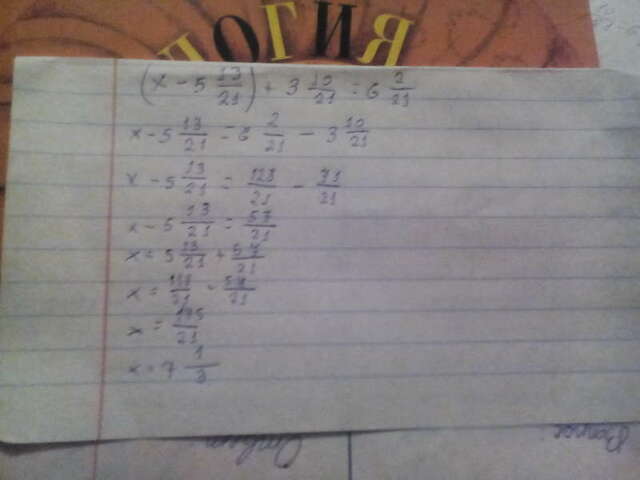 ЛОГИЯ
(x - 5 13/21) + 3 10/21 = 6 2/21
x - 5 13/21 = 6 2/21 - 3 10/21
x - 5 13/21 = 128/21 - 73/21
x - 5 13/21 = 57/21
x = 5 13/21 + 57/21
x = 118/21 + 57/21
x = 175/21
x = 7 1/3